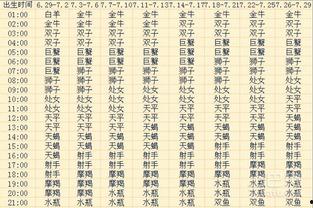 出生时间 6.29-7.2 7.3-7.6 7.7-7.10 7.11-7.13 7.14-7.17 7.18-7.21 7.22-7.25 7.26-7.29
01:00 白羊 金牛 金牛 金牛 金牛 金牛 金牛 金牛
02:00 金牛 金牛 金牛 金牛 金牛 双子 双子 双子
03:00 金牛 双子 双子 双子 双子 双子 双子 双子
04:00 双子 双子 双子 双子 双子 巨蟹 巨蟹 巨蟹
05:00 巨蟹 巨蟹 巨蟹 巨蟹 巨蟹 巨蟹 巨蟹 巨蟹
06:00 巨蟹 巨蟹 巨蟹 巨蟹 巨蟹 狮子 狮子
07:00 巨蟹 狮子 狮子 狮子 狮子 狮子 狮子 狮子
08:00 狮子 狮子 狮子 狮子 狮子 狮子
09:00 狮子 狮子 狮子 处女 处女 处女
10:00 处女 处女 处女 处女 处女 处女 处女 处女
11:00 处女 处女 处女 处女 天平
12:00 天平 天平 天平 天平 天平 天平 天平 天平
13:00 天平 天平 天平 天蝎 天蝎 天蝎
14:00 天蝎 天蝎 天蝎 天蝎 天蝎 天蝎 天蝎 天蝎
15:00 天蝎 天蝎 天蝎 天蝎 射手 射手
16:00 天蝎 射手 射手 射手 射手 射手 射手 射手
17:00 射手 射手 射手 射手 摩羯 摩羯
18:00 射手 摩羯 摩羯 摩羯 摩羯
19:00 摩羯 摩羯 摩羯 水瓶 水瓶
20:00 摩羯 摩羯 水瓶 水瓶 水瓶 水瓶
21:00 水瓶 水瓶 水瓶 水瓶 水瓶 双鱼 双鱼